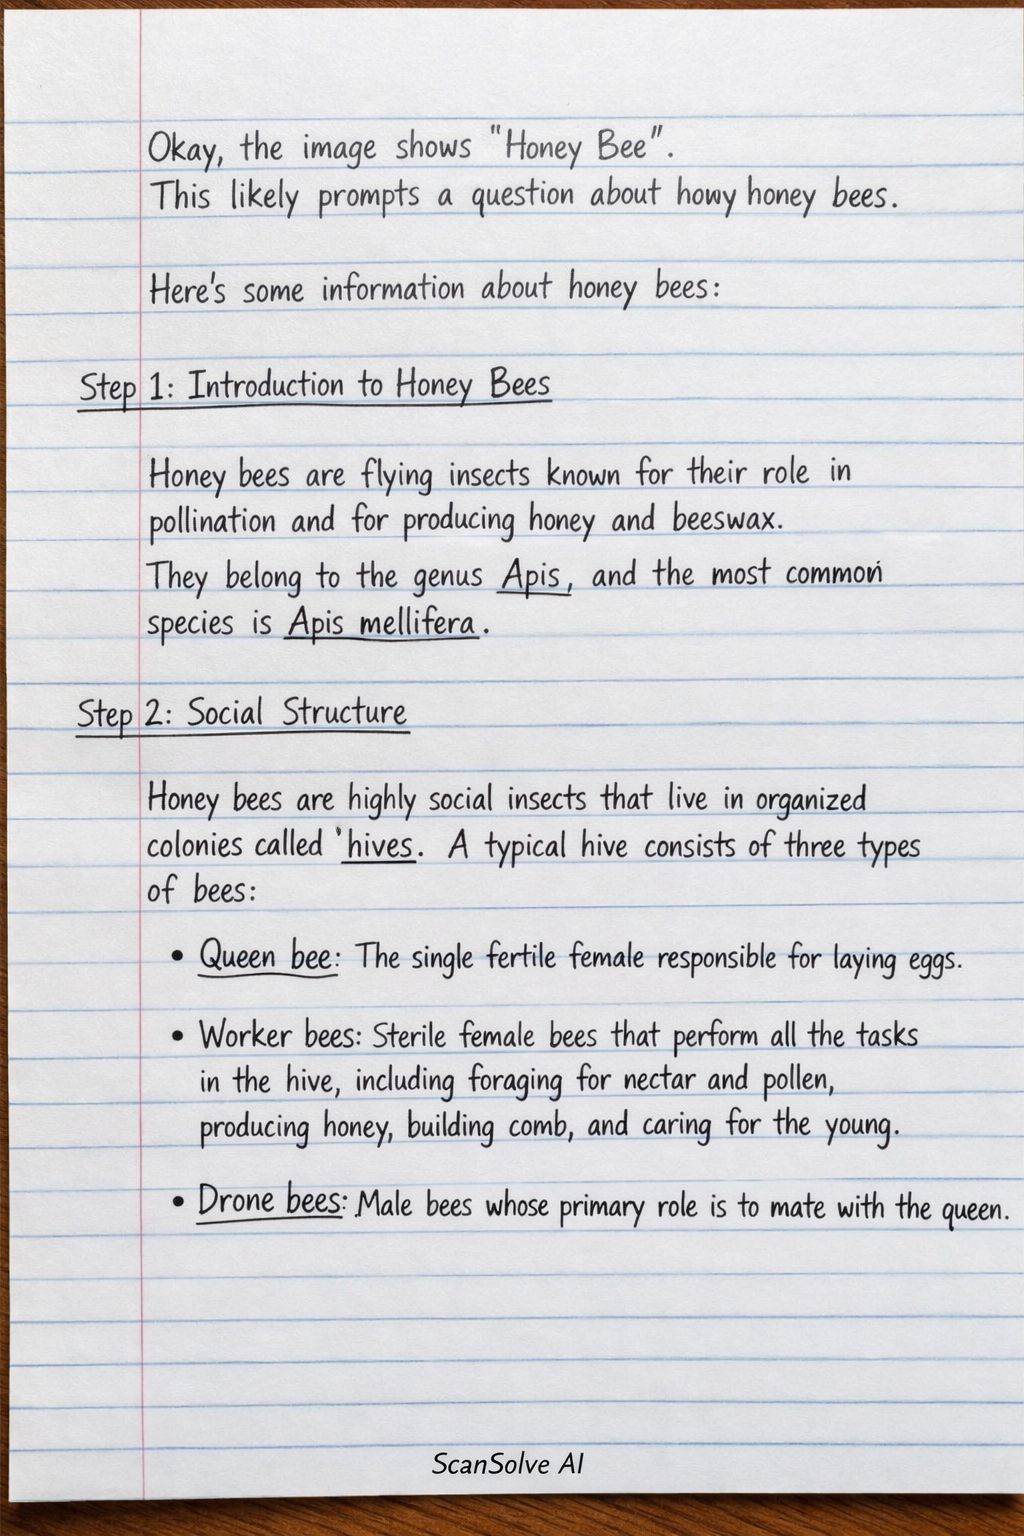 Okay, the image shows "Honey Bee".
This likely prompts a question about howy honey bees.
Here's some information about honey bees:
Step 1: Introduction to Honey Bees
Honey bees are flying insects known for their role in
pollination and for producing honey and beeswax.
They belong to the genus Apis, and the most common
species is Apis mellifera.
Step 2: Social Structure
Honey bees are highly social insects that live in organized
colonies called 'hives. A typical hive consists of three types
of bees:
• Queen bee: The single fertile female responsible for laying eggs.
• Worker bees: Sterile female bees that perform all the tasks
in the hive, including foraging for nectar and pollen,
producing honey, building comb, and caring for the young.
• Drone bees: Male bees whose primary role is to mate with the queen.
ScanSolve AI